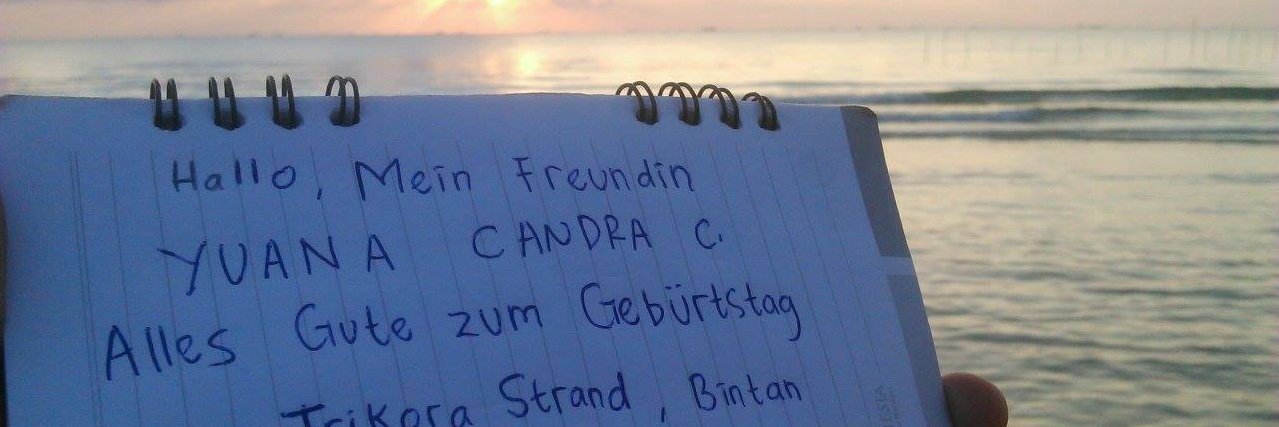 Hallo, Mein Freundin
YUANA CANDRA C.
Alles Gute zum Gebürtstag
Trikora Strand, Bintan